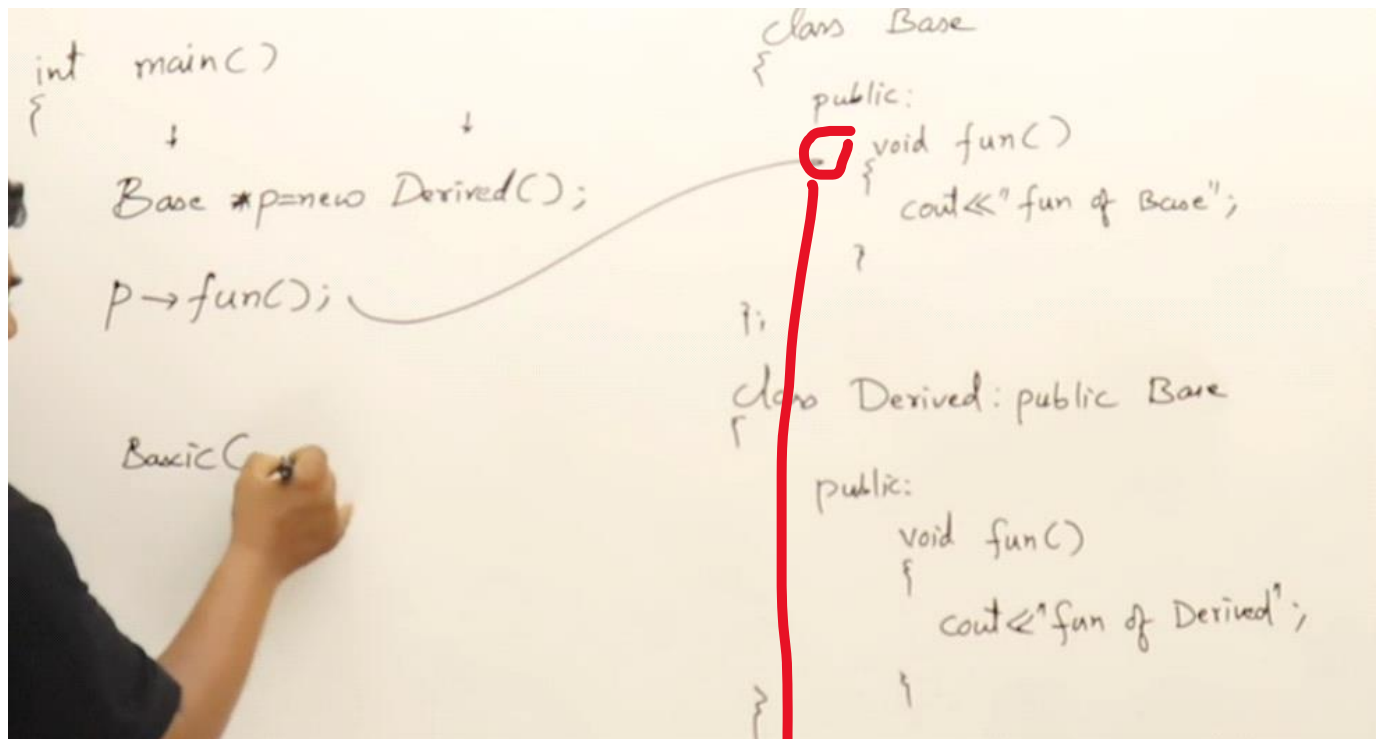 int main()
{
Base *p=new Derived();
p→fun();
Bascic(
class Base
{
public:
void fun()
{
cout<<"fun of Base";
}
};
class Derived: public Base
{
public:
void fun()
{
cout<<"fun of Derived";
}
}